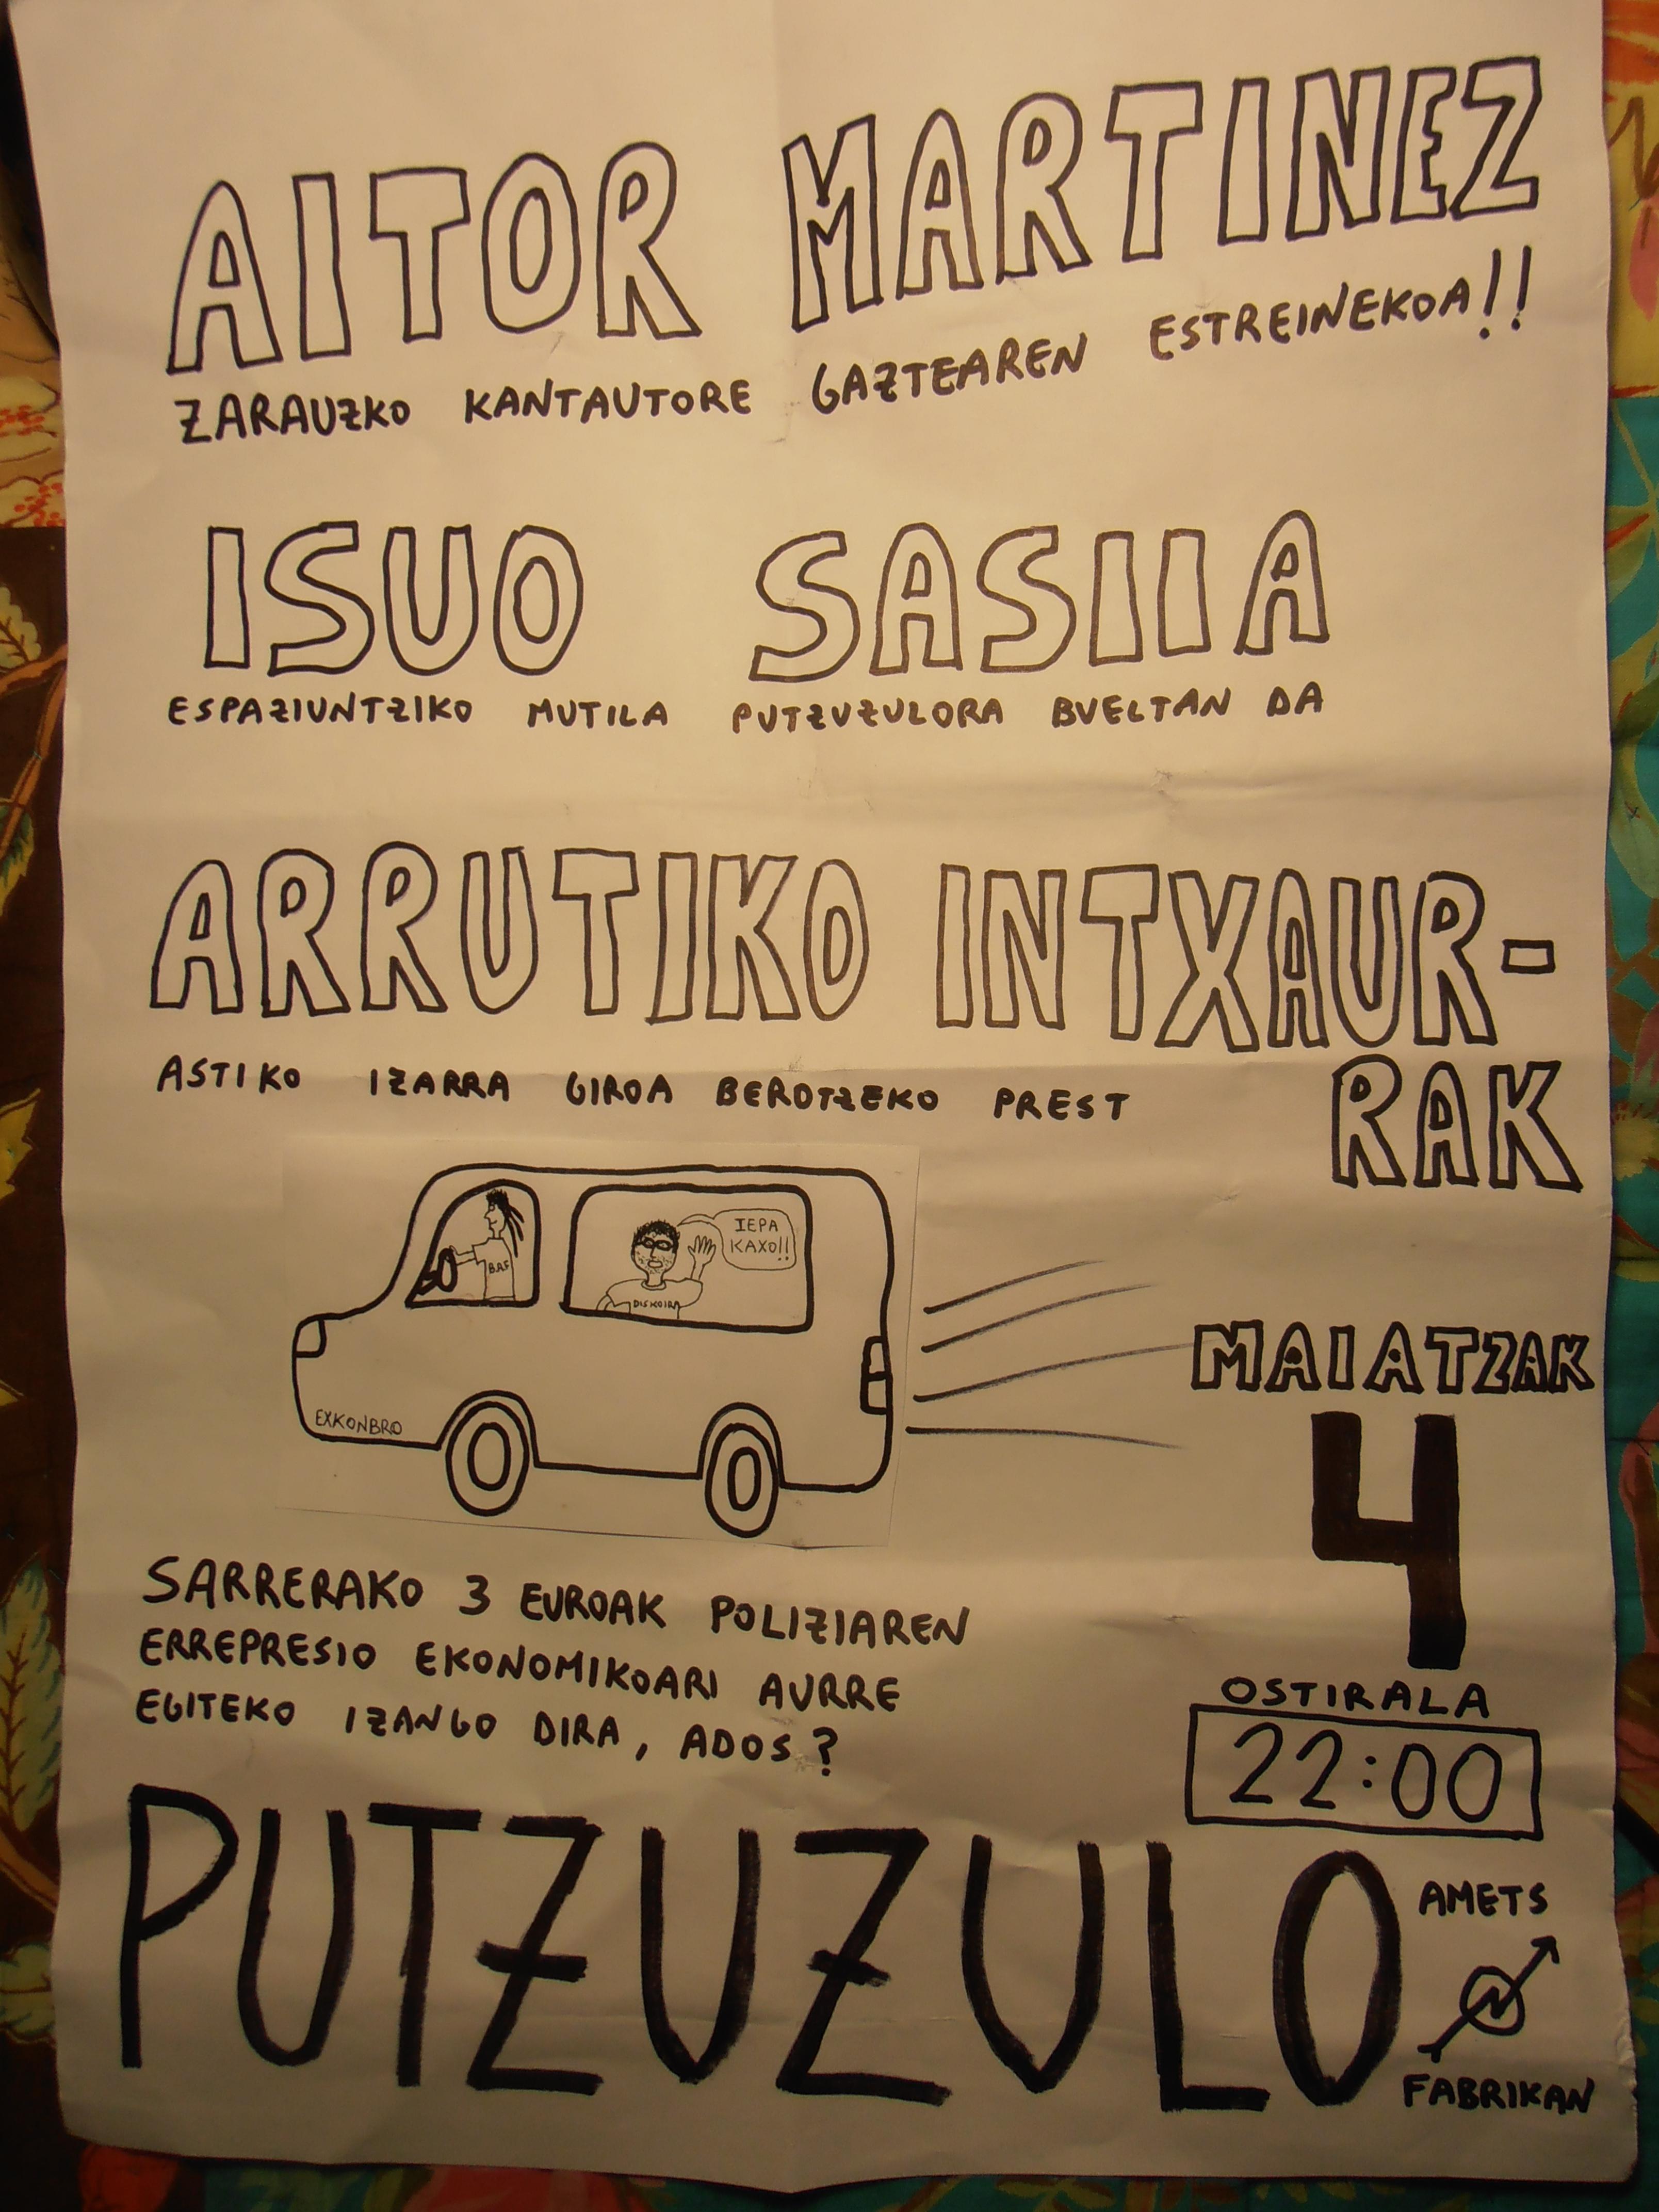 AITOR MARTINEZ
ZARAUZKO KANTAUTORE GAZTEAREN ESTREINEKOA!!
ISUO SASIIA
ESPAZIUNTZIKO MUTILA PUTZUZULORA BUELTAN DA
ARRUTIKO INTXAUR-
RAK
ASTIKO IZARRA GIROA BEROTZEKO PREST
IEPA
KAXO!!
BAF
DISKOIRA
EXKONBRO
MAIATZAK
4
OSTIRALA
22:00
SARRERAKO 3 EUROAK POLIZIAREN
ERREPRESIO EKONOMIKOARI AURRE
EGITEKO IZANGO DIRA, ADOS?
PUTZUZULO
AMETS
FABRIKAN